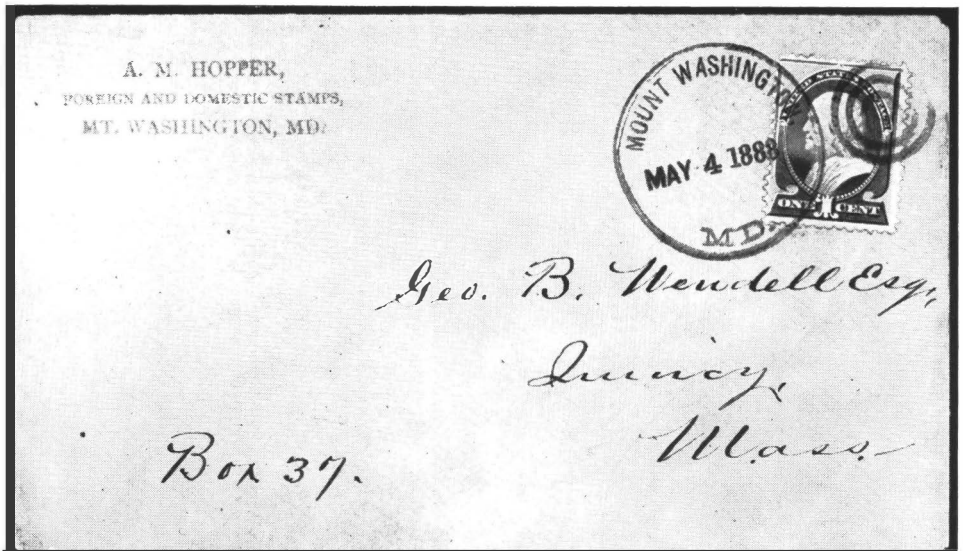 A. M. HOPPER,
FOREIGN AND DOMESTIC STAMPS,
MT. WASHINGTON, MD.
MOUNT WASHINGTON
MAY 4 1888
MD.
ONE 1 CENT
Geo. B. Wendell Esq.,
Quincy,
Mass.
Box 37.